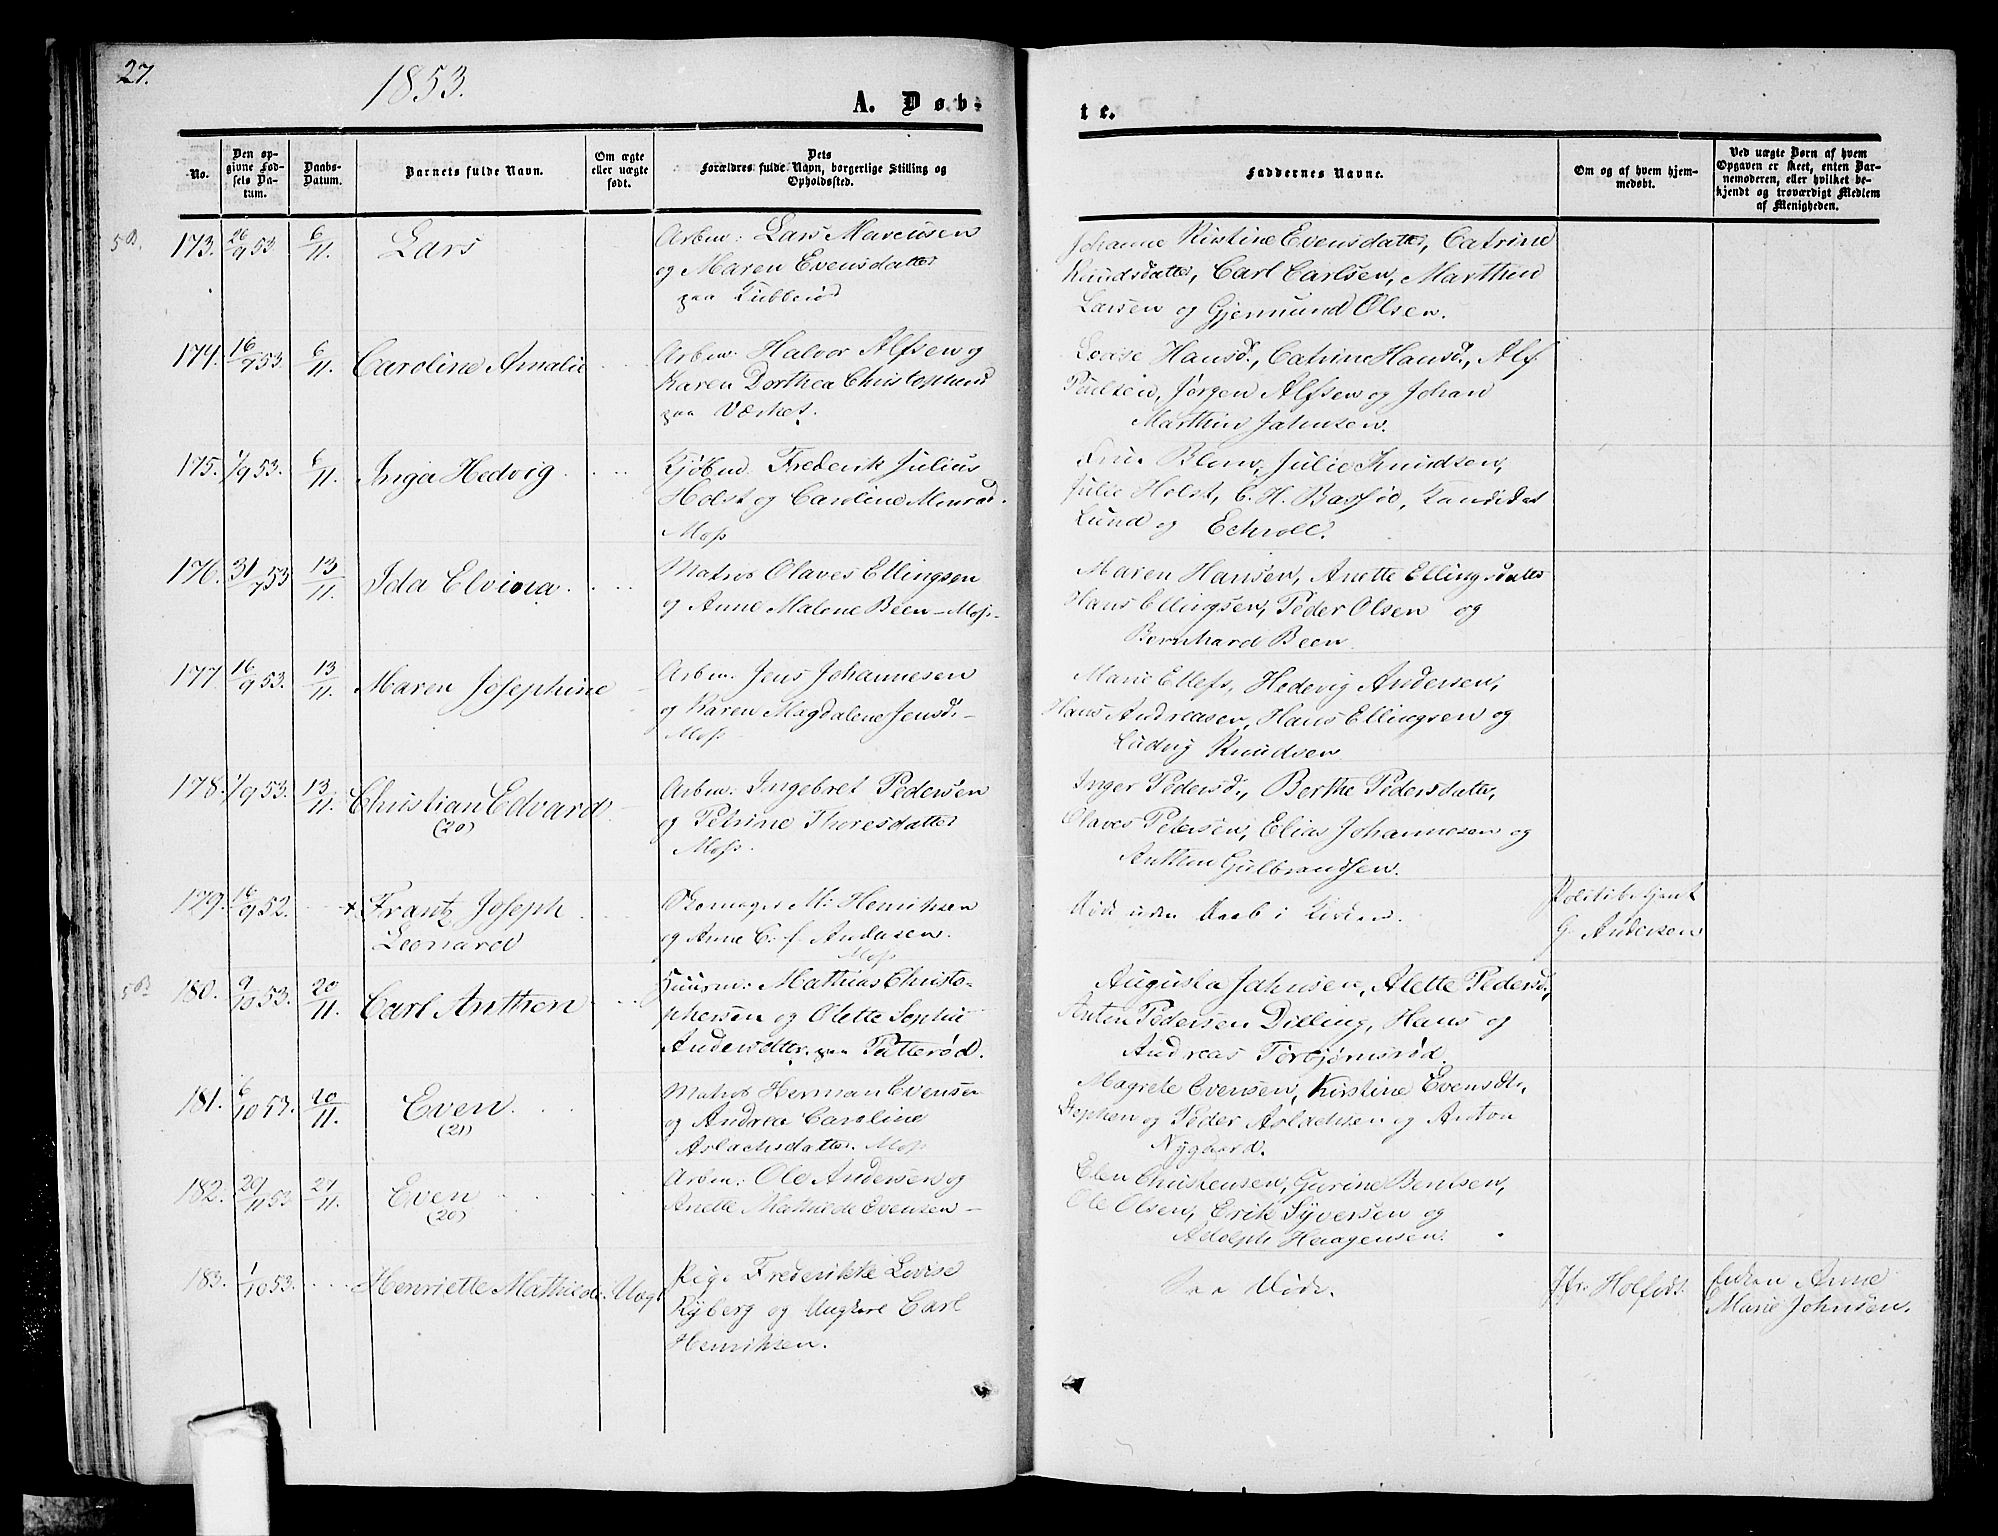 27.
1853.
A. Døb-
te.
No.
Den op-
givne Fød-
sels Da-
tum.
Daabs-
Datum.
Barnets fulde Navn.
Om ægte
eller uægte
født.
Dets
Forældres fulde Navn, borgerlige Stilling og
Opholdssted.
Faddernes Navne.
Om og af hvem hjem-
medøbt.
Ved uægte Børn af hvem
Opgaven er skeet, enten Bar-
nemoderen, eller hvilket be-
kjendt og troværdigt Medlem
af Menigheden.
173. 26/9 53 6/11. Lars
Arbm: Lars Marcusen
og Maren Evensdatter
paa
Johanne Kirstine Evensdatter, Catrine
Knudsdatter, Carl Carlsen, Marthin
Larsen og Gjermund Olsen.
174. 16/7 53. 6/11. Caroline Amalie
Arbm: Halvor Alfsen og
Karen Dorthea Christophersd
paa Værket.
Lovise Hansd., Catrine Hansd., Alf
Paulsen, Jørgen Alfsen og Johan
Marthin Jahnsen.
175. 1/9 53. 6/11. Inga Hedvig
Kjøbm. Frederik Julius
Holst og Caroline Monrad.
Moss
Fru Blom, Julie Knudsen,
Julie Holst, C. H. Kandidat
Lund og
176. 31/7 53 13/11. Ida Elvina
Matros Olaves Ellingsen
og Anne Malene Been - Moss.
Maren Hansen, Anette Ellingsdatter
Hans Ellingsen, Peder Olsen og
Bernhard Been.
177. 16/9 53. 13/11. Maren Josephine
Arbm. Jens Johannesen
og Karen Magdalene Jensd. -
Moss.
Marie Ellefs, Hedevig Andersen,
Hans Andreasen, Hans Ellingsen og
Ludvig Knudsen
178. 1/9 53. 13/11. Christian Edvard
(20)
Arbm: Ingebret Pedersen
og Petrine Thoresdatter
Moss.
Inger Pedersd., Berthe Pedersdatter,
Olaves Petersen, Elias Johannesen og
Anthon Gulbrandsen.
179. 16/9 52. + Frantz Joseph
Leonard
Skomager M: Henriksen
og Anne C. f. Andersen.
Moss
Død uden Daab i Kirken.
Politibetjent
G. Andersen
180. 9/10 53. 20/11. Carl Anthon
Huusm: Mathias Christo-
phersen og Olette Sophie
Andersdatter paa Patterød.
Augusta Jahnsen, Alette Pedersd.,
Anton Pedersen Dilling, Hans og
Andreas Torbjørnsrød.
181. 6/10 53. 20/11. Even.
(21)
Matros Herman Evensen
og Andrea Caroline
Aslachsdatter. Moss.
Magrete Evensen, Kirstine Evensdt.,
Stephen og Peder Aslachsen og Anton
Nygaard.
182. 53. 27/11. Even
(20)
Arbm: Ole Andersen og
Anette Mathilde Evensen -
Elen Christensen, Gurine Bentsen,
Ole Olsen, Erik Syversen og
Adolph Haagensen.
183. 1/10 53. Henriette Mathilde. Uægt.
Pige Frederikke Lovise
Ryberg og Ungkarl Carl
Henriksen.
Saa Døde.
Jfr. Holfeldt.
Enken Anne
Marie Johnsen.